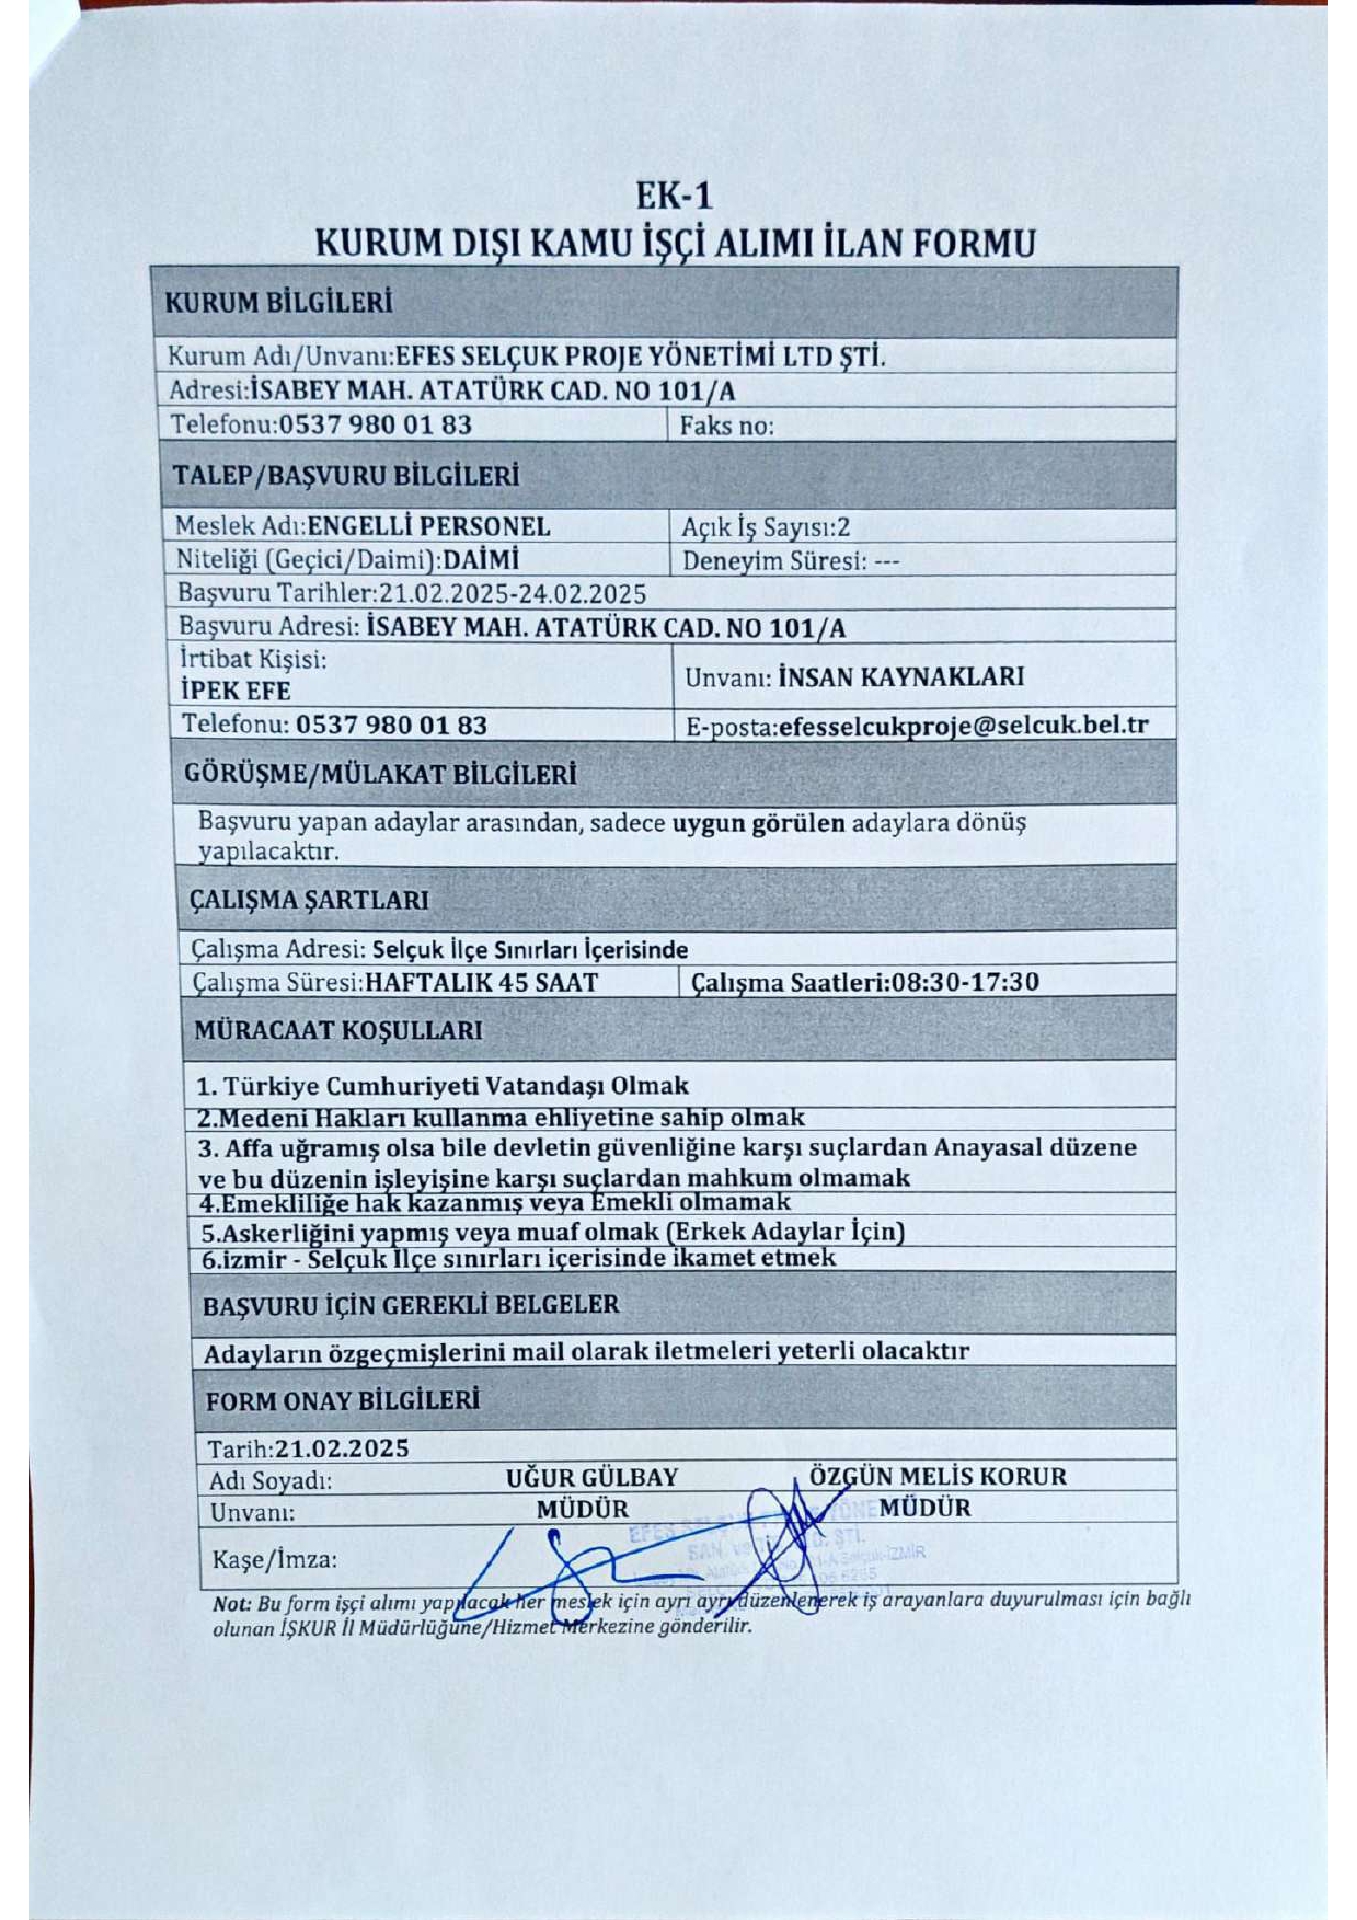 EK-1
KURUM DIŞI KAMU İŞÇİ ALIMI İLAN FORMU
KURUM BİLGİLERİ
Kurum Adı/Unvanı:EFES SELÇUK PROJE YÖNETİMİ LTD ŞTİ.
Adresi:İSABEY MAH. ATATÜRK CAD. NO 101/A
Telefonu:0537 980 01 83 Faks no:
TALEP/BAŞVURU BİLGİLERİ
Meslek Adı:ENGELLİ PERSONEL Açık İş Sayısı:2
Niteliği (Geçici/Daimi):DAİMİ Deneyim Süresi: ---
Başvuru Tarihler:21.02.2025-24.02.2025
Başvuru Adresi: İSABEY MAH. ATATÜRK CAD. NO 101/A
İrtibat Kişisi:
İPEK EFE Unvanı: İNSAN KAYNAKLARI
Telefonu: 0537 980 01 83 E-posta:efesselcukproje@selcuk.bel.tr
GÖRÜŞME/MÜLAKAT BİLGİLERİ
Başvuru yapan adaylar arasından, sadece uygun görülen adaylara dönüş
yapılacaktır.
ÇALIŞMA ŞARTLARI
Çalışma Adresi: Selçuk İlçe Sınırları İçerisinde
Çalışma Süresi:HAFTALIK 45 SAAT Çalışma Saatleri:08:30-17:30
MÜRACAAT KOŞULLARI
1. Türkiye Cumhuriyeti Vatandaşı Olmak
2.Medeni Hakları kullanma ehliyetine sahip olmak
3. Affa uğramış olsa bile devletin güvenliğine karşı suçlardan Anayasal düzene
ve bu düzenin işleyişine karşı suçlardan mahkum olmamak
4.Emekliliğe hak kazanmış veya Emekli olmamak
5.Askerliğini yapmış veya muaf olmak (Erkek Adaylar İçin)
6.izmir - Selçuk İlçe sınırları içerisinde ikamet etmek
BAŞVURU İÇİN GEREKLİ BELGELER
Adayların özgeçmişlerini mail olarak iletmeleri yeterli olacaktır
FORM ONAY BİLGİLERİ
Tarih:21.02.2025
Adı Soyadı: UĞUR GÜLBAY ÖZGÜN MELİS KORUR
Unvanı: MÜDÜR MÜDÜR
Kaşe/İmza:
Not: Bu form işçi alımı yapılacak her meslek için ayrı ayrı düzenlenerek iş arayanlara duyurulması için bağlı
olunan İŞKUR İl Müdürlüğüne/Hizmet Merkezine gönderilir.